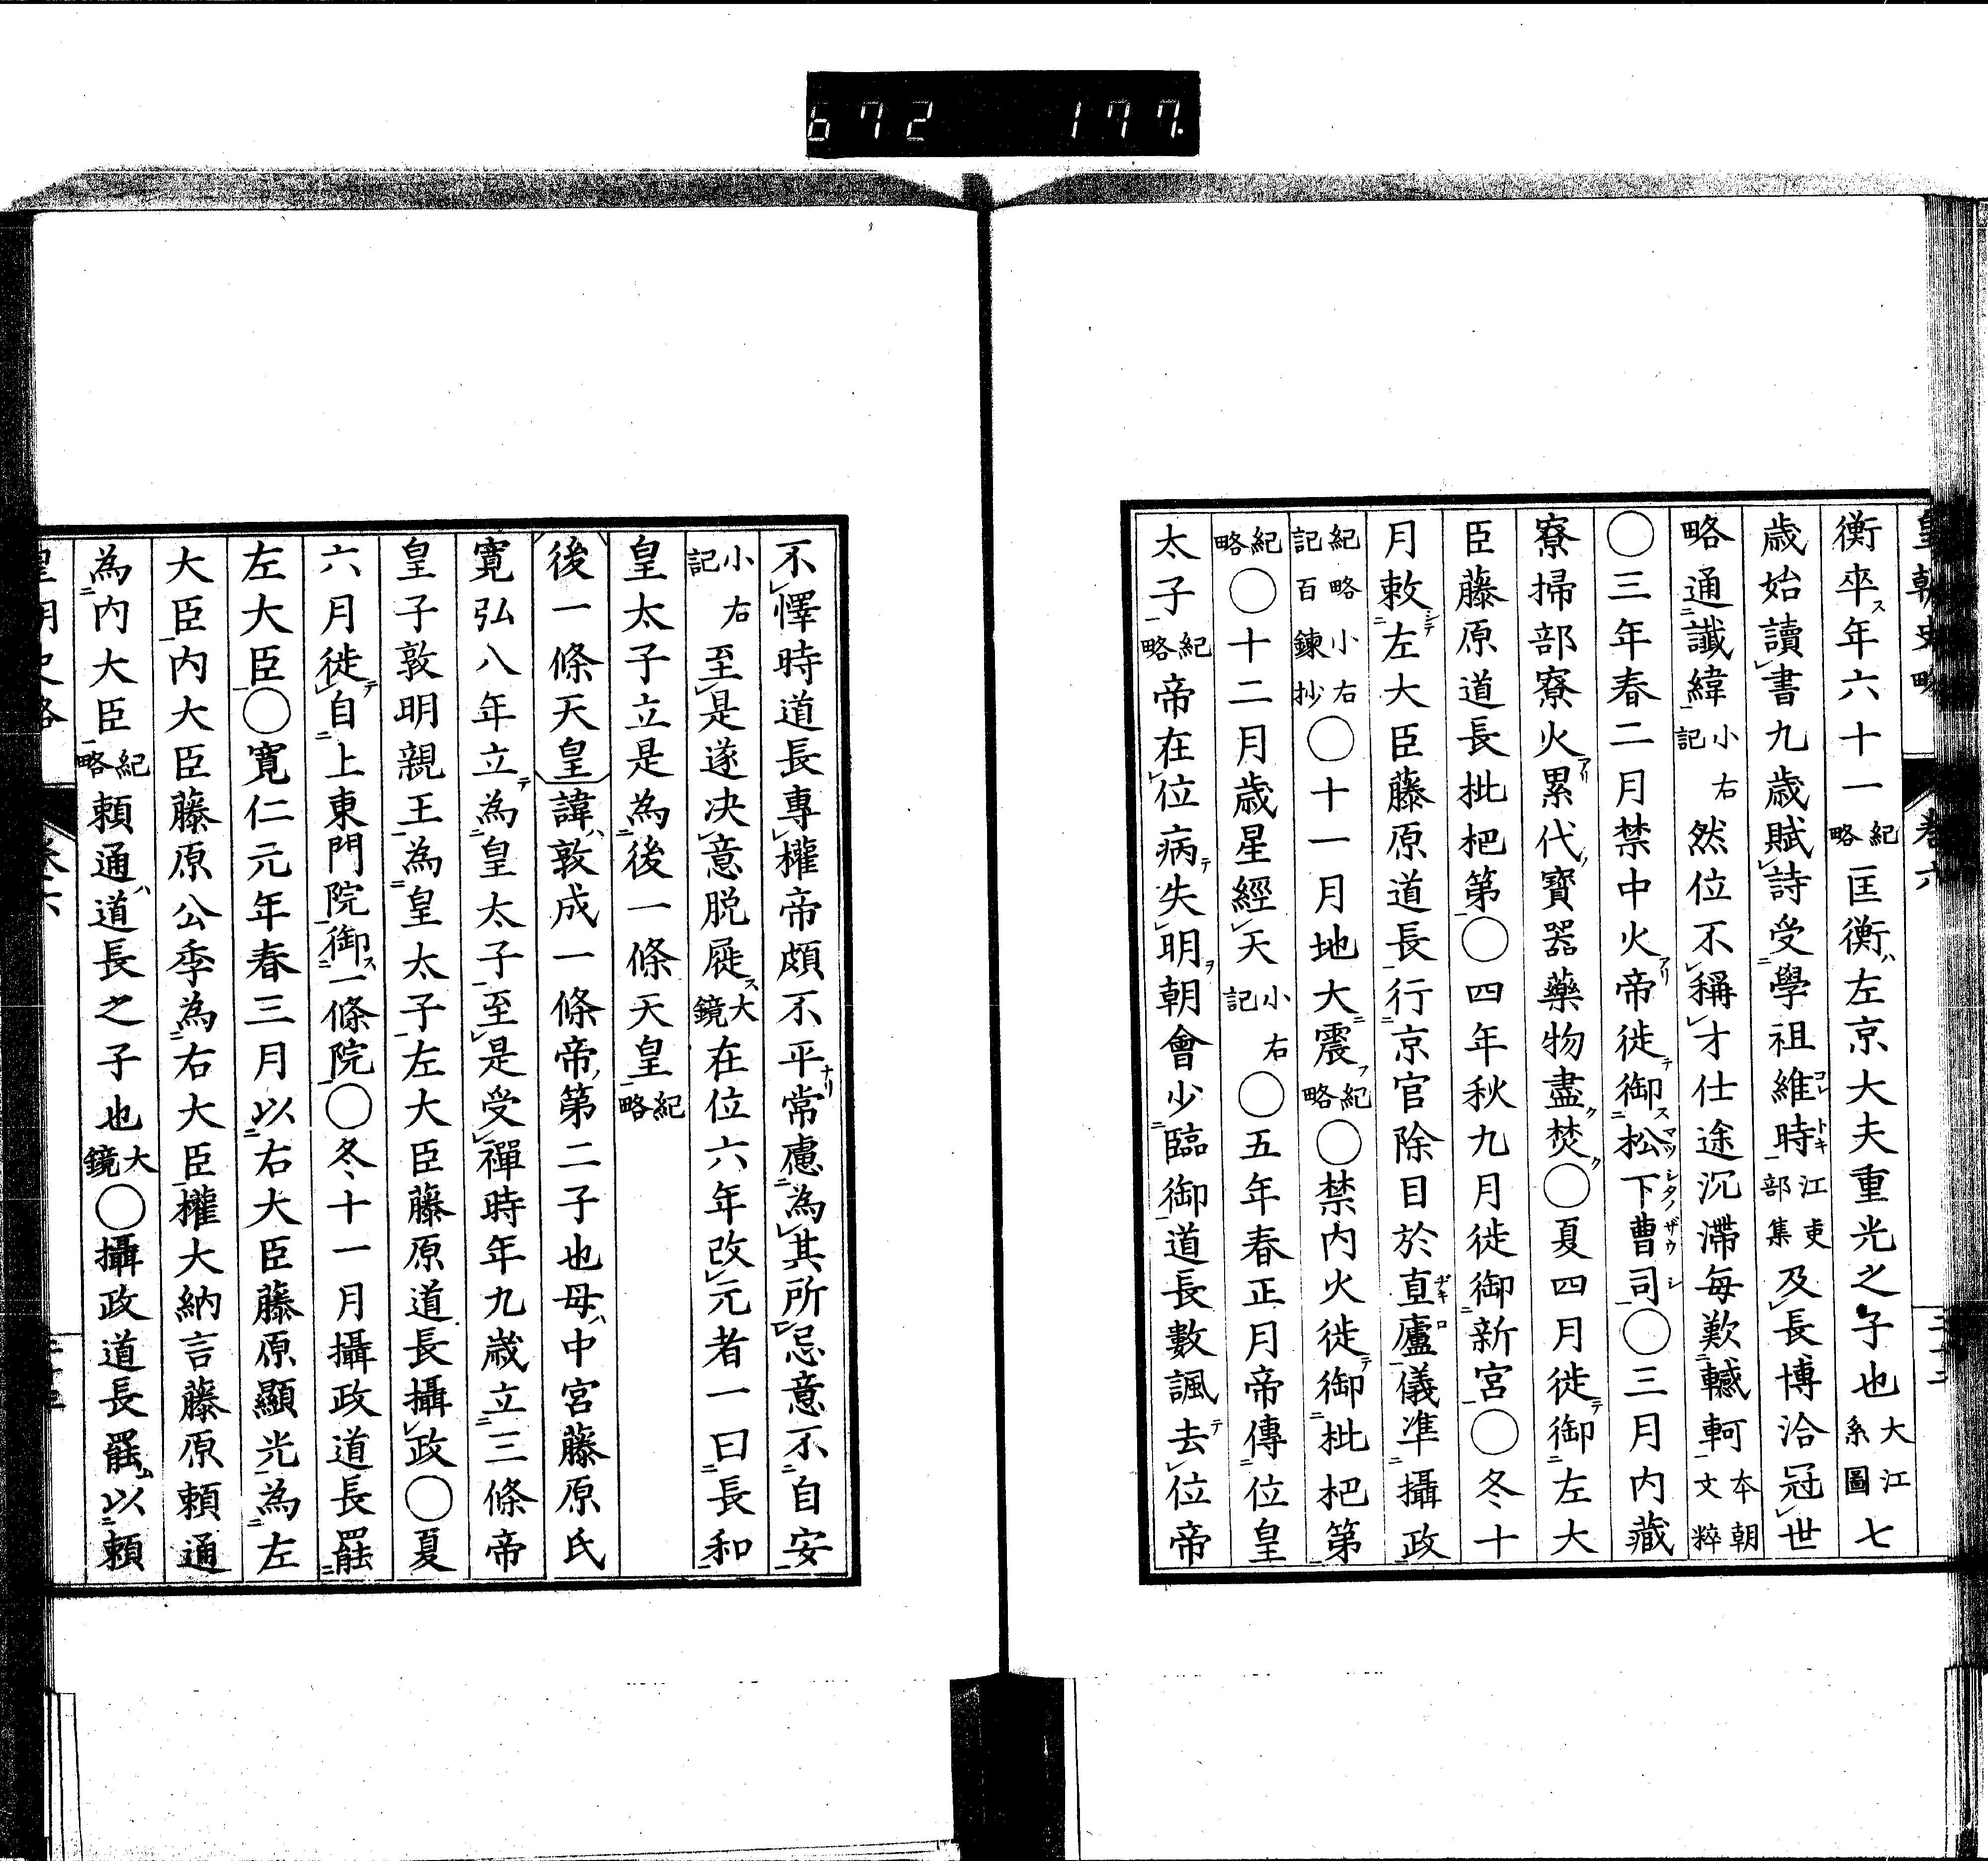 672 177
皇朝史略 卷六
衡卒ス年六十一紀略匡衡ハ左京大夫重光之子也大江系圖七
歳始讀書九歳賦詩受學祖維時コレトキ江吏部集及長博洽冠世
略通讖緯小右記然位不稱才仕途沉滯每歎轗軻本朝文粹
〇三年春二月禁中火アリ帝徙テ御ス松下曹司マツシタノザウシ〇三月内藏
寮掃部寮火アリ累代ノ寶器藥物盡ク焚ク〇夏四月徙テ御左大
臣藤原道長批杷第〇四年秋九月徙御新宮〇冬十
月敕シテ左大臣藤原道長行京官除目於直廬ヂキロ儀準攝政
紀略小右記百鍊抄〇十一月地大震フ紀略〇禁内火徙テ御枇杷第
紀略〇十二月歳星經天小右記〇五年春正月帝傳位皇
太子紀略帝在位病テ失明ヲ朝會少臨御道長數諷去テ位帝
不懌時道長專權帝頗不平ナリ常慮為其所忌意不自安
小右記至是遂决意脱屣ス大鏡在位六年改元者一曰長和
皇太子立是為後一條天皇紀略
後一條天皇諱ハ敦成一條帝ノ第二子也母ハ中宮藤原氏
寛弘八年立テ為皇太子至是受禪時年九歳立三條帝
皇子敦明親王為皇太子左大臣藤原道長攝政〇夏
六月徙テ自上東門院御ス一條院〇冬十一月攝政道長罷
左大臣〇寛仁元年春三月以右大臣藤原顯光為左
大臣内大臣藤原公季為右大臣權大納言藤原賴通
為内大臣紀略賴通ハ道長之子也大鏡〇攝政道長罷ム以賴